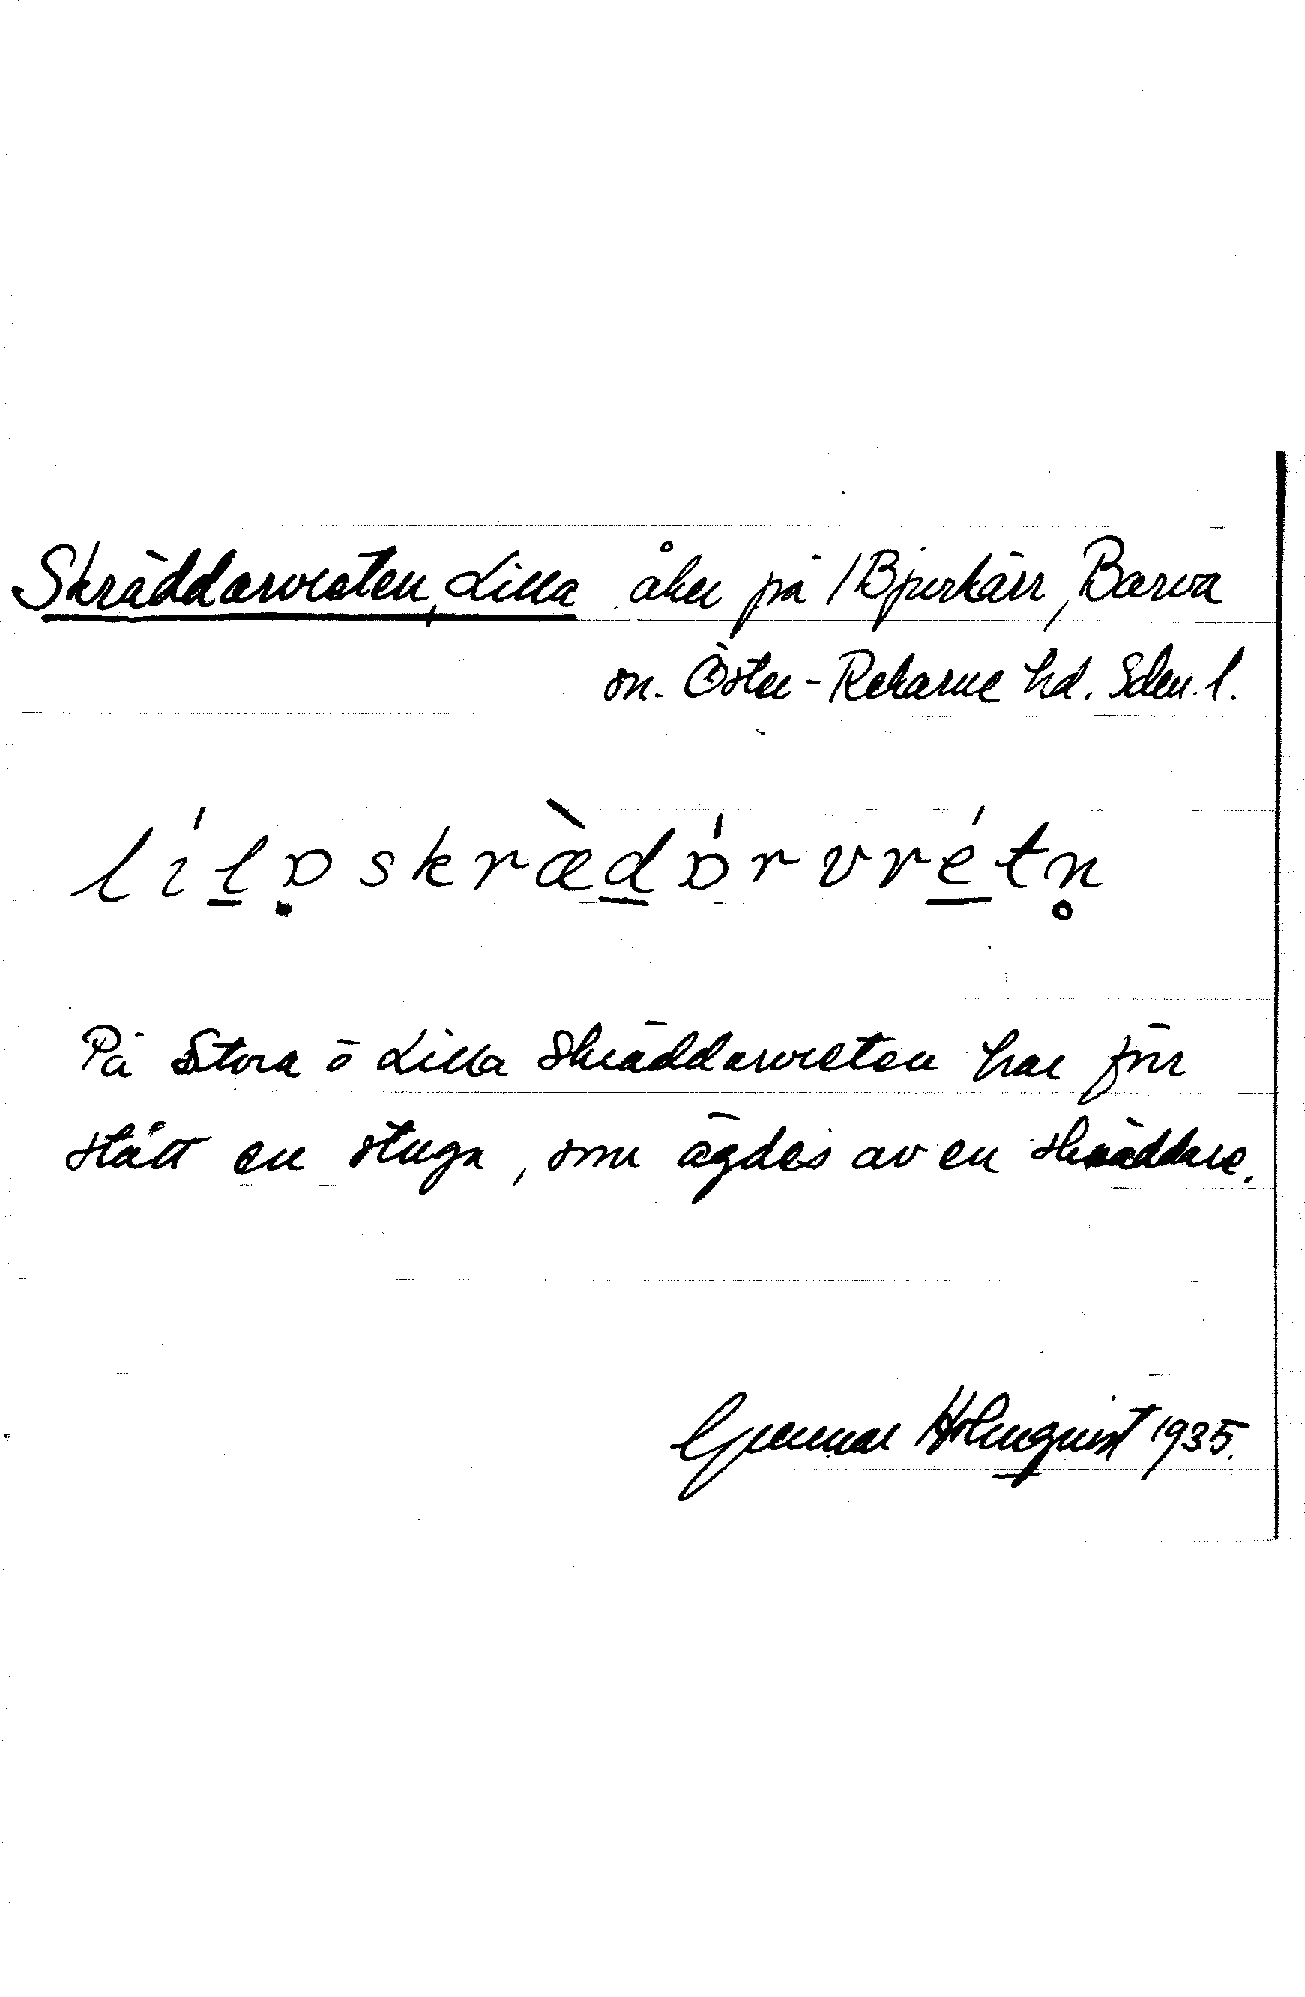 Skräddarvreten, Lilla åker på / Bjurkärr, Barva
sn. Öster-Rekarne hd. Sdm. l.
lílɒskræ̀dɒ́rvrétn̥
På Stora o Lilla Skräddarvreten har förr
stått en stuga, som ägdes av en skräddare.
Gunnar Holmquist 1935.